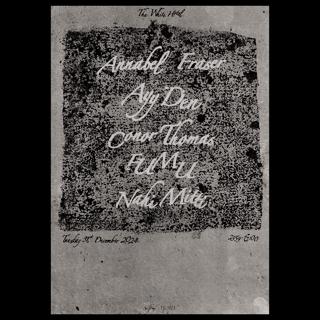 The White Hotel
Annabel Fraser
Ayy Den
Conor Thomas
FUMU
Naki
Tuesday 31st December 2024